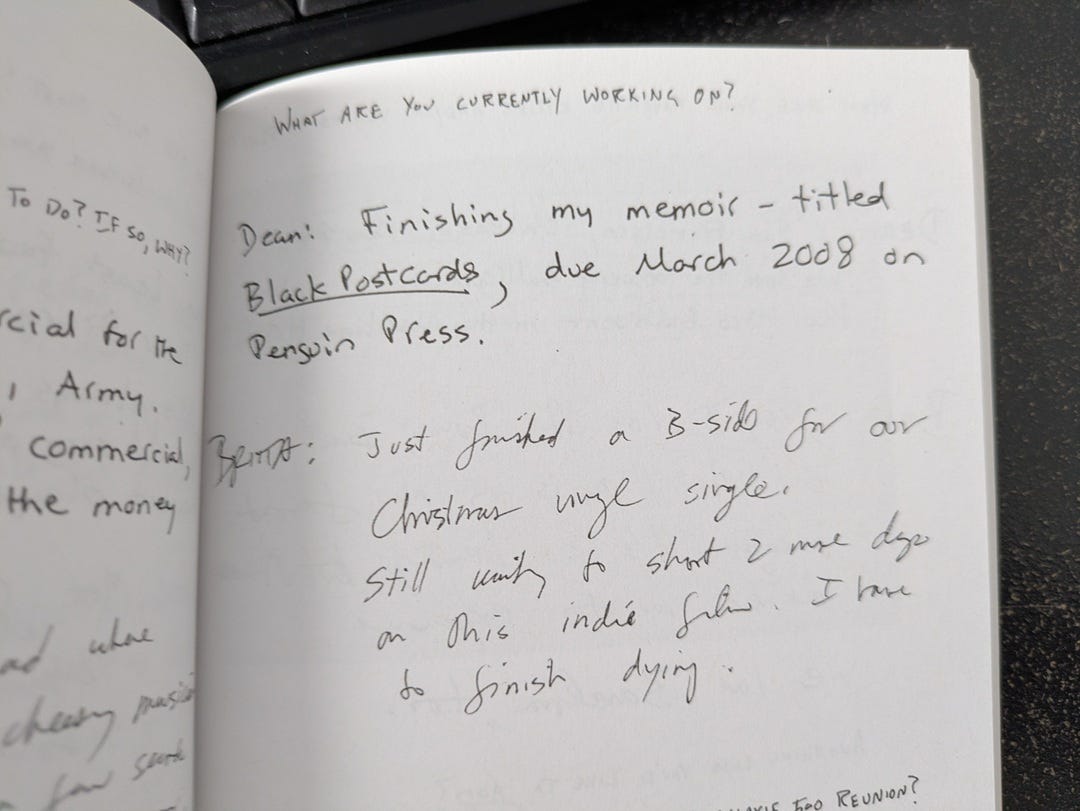 To Do? If so, why?
rcial for the
, Army.
commercial,
the money
ad where
cheesy music
What are you currently working on?
Dean: Finishing my memoir - titled
Black Postcards, due March 2008 on
Penguin Press.
Britta: Just finished a B-side for our
Christmas vinyl single.
Still waiting to shoot 2 more days
on this indie film. I have
to finish dying.
Reunion?